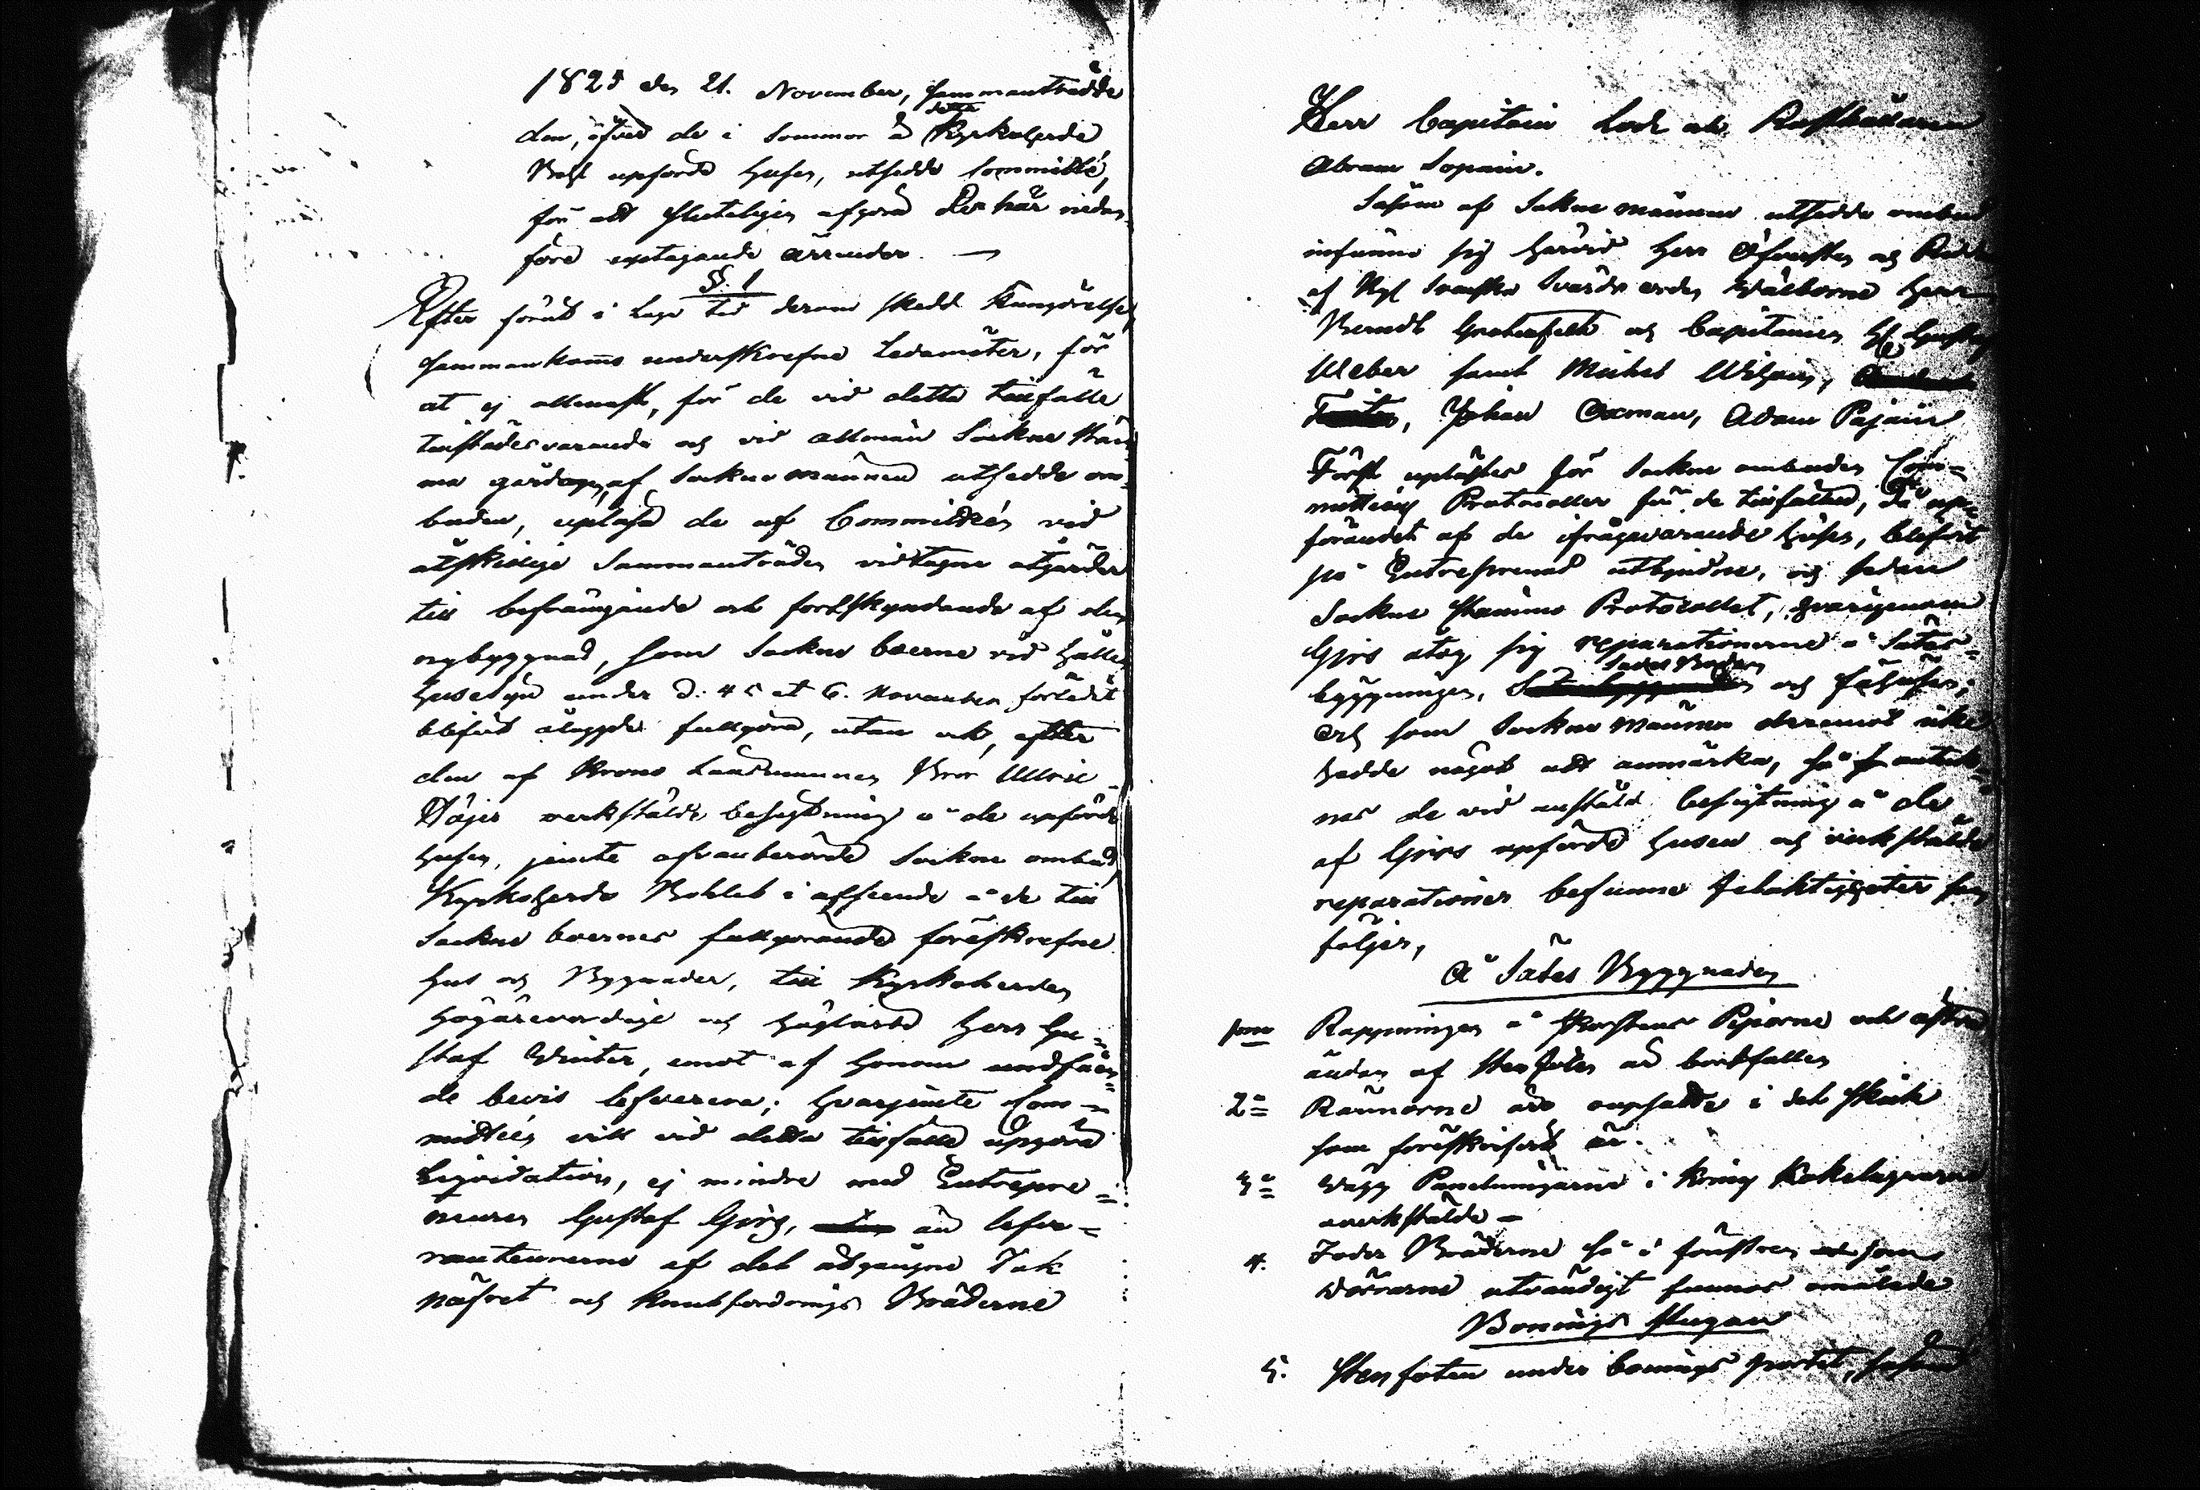 1825 den 21. November, sammanträdde
den, öfver de i sommar å detta Kyrkoherde
Bohl upförde husen, utsedde Committé,
för att sluteligen afgöra de här nedan
före uptagande ärender. —
§. 1
Efter förut i laga tid derom skedd Kungörelse,
sammankomo underskrefne Ledamöter, för
at ej allenast, för de vid detta tillfälle
tillstädesvarande och vid allmän Sockne Stäm
ma gårdagen, af Socknemännen utsedde om-
buden, upläsa de af Committéen vid
åtskillige Sammanträden vidtagne åtgärder
till befrämjande och fortskyndande af den
nybyggnad, som Sockne boerne vid hållen
husesyn under d. 4 5 et 6. November förledit
blifvit ålagde fullgöra, utan ock, efter
den af Krono Länsmannen Bror Ulric
verkstälde besigtning å de upförde
husen, jemte ofvanberörde Sockne ombud,
Kyrkoherde Bohlet i afseende å de till
Sockne boernes fullgörande föreskrefne
hus och Bygnader, till Kyrkoherden
Högärevördige och höglärde Herr Gu-
staf Winter, emot af honom undfåen-
de bevis lefverera; hvarjemte Com-
mittéen vill vid detta tillfälle upgöra
Liqvidation, ej mindre med Entrepre-
neuren Gustaf Görs, än lefve-
ranteurerne af det åtgångne Tak
näfret och Knubfordrings Bräderne
Herr Capitain Lode och Rusthållaren
Abram Sopain.
Såsom af Sokne männen utsedde ombud
infunno sig härvid Herr Öfversten och Riddaren
af Kgl Svenska Svärds orden Välborne Herr
Berndt Grotenfelt och Capitainen H. Gustaf
Weber samt Michel
Johan Oxman, Adam Pajain
Först uplästes för Sockne ombuden Com-
mitteens Protocoller för de tillfällen, då up-
förandet af de ifrågavarande husen, blifvit
på Entreprenad utbjudne, och sedan
Sockne Stämmo Protocollet, hvarigenom
Görs åtog sig reparationerne å Sätes-
byggningen, Sädes Boden och fähusen;
och som Sockne männen deremot icke
hadde något att anmärka, så antek-
nas de vid anstäld besigtning å de
af Görs upförde husen och verkstälde
reparationer befunne felaktigheter som
följer,
Å Sätes Byggnaden
1mo Rappningen å Skorstens Piporne och östra
ändan af Stenfoten är bortfallen
2º Rännorne äro upsatte i det skick
som föreskrifvit är.
3º Vägg Panelningarne i kring Kakelugnarne
overkstälde —
4. Foder Bräderne så i fönstren som
dörrarne utvändigt funnos omålade
Bonings Stugan
5. Stenfoten under bonings